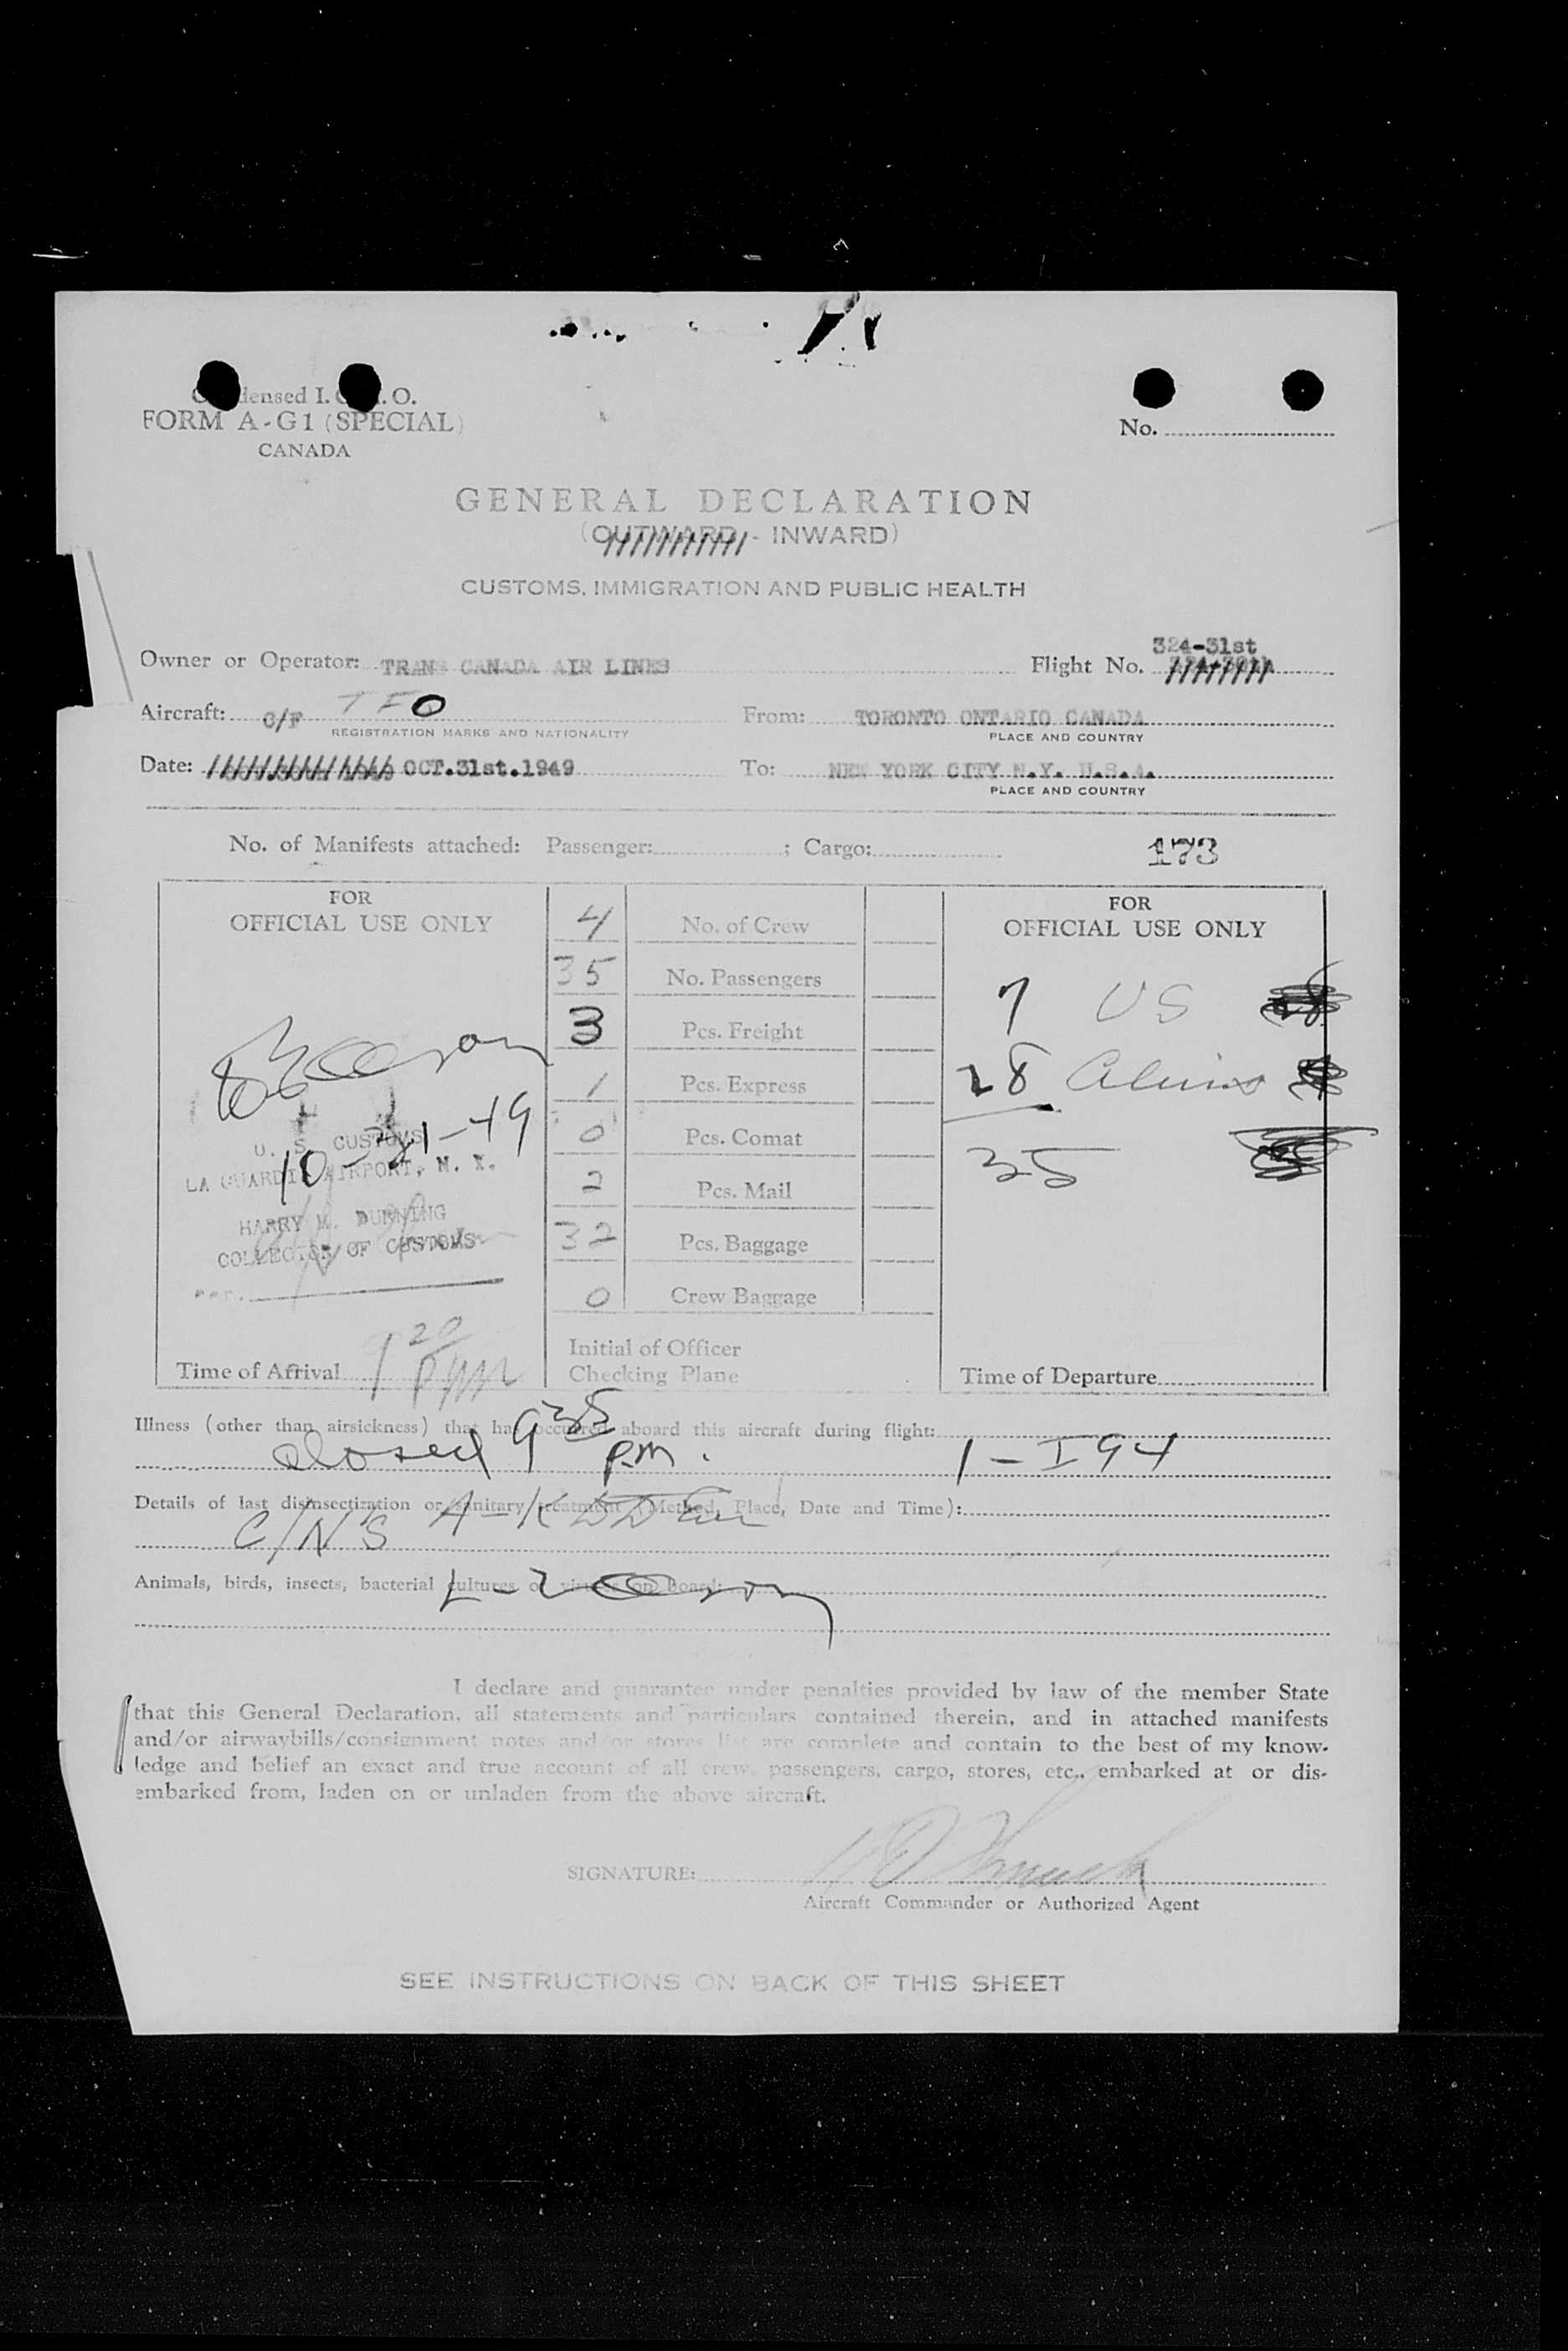 Condensed I.C.A.O.
FORM A-G1 (SPECIAL)
CANADA
No.
GENERAL DECLARATION
(OUTWARD - INWARD)
CUSTOMS, IMMIGRATION AND PUBLIC HEALTH
324-31st
Owner or Operator: TRANS CANADA AIR LINES Flight No.
Aircraft: C/F TFO From: TORONTO ONTARIO CANADA
REGISTRATION MARKS AND NATIONALITY PLACE AND COUNTRY
Date: OCT.31st.1949 To: NEW YORK CITY N.Y. U.S.A.
PLACE AND COUNTRY
No. of Manifests attached: Passenger: ; Cargo: 173
FOR OFFICIAL USE ONLY
4 No. of Crew
35 No. Passengers
3 Pcs. Freight
1 Pcs. Express
0 Pcs. Comat
2 Pcs. Mail
32 Pcs. Baggage
0 Crew Baggage
Initial of Officer
Checking Plane
10-31-49
U. S. CUSTOMS
LA GUARDIA AIRPORT, N. Y.
HARRY M. DURNING
COLLECTOR OF CUSTOMS
per.
Time of Arrival 9 20 pm
FOR
OFFICIAL USE ONLY
7 US
28 Aliens
35
Time of Departure
Illness (other than airsickness) that has occurred aboard this aircraft during flight:
closed 9 35 p.m. 1-I94
Details of last disinsectization or sanitary treatment (Method, Place, Date and Time):
C/N'S A-K
Animals, birds, insects, bacterial cultures or viruses on board:
L-Z
I declare and guarantee under penalties provided by law of the member State
that this General Declaration, all statements and particulars contained therein, and in attached manifests
and/or airwaybills/consignment notes and/or stores list are complete and contain to the best of my know-
ledge and belief an exact and true account of all crew, passengers, cargo, stores, etc., embarked at or dis-
embarked from, laden on or unladen from the above aircraft.
SIGNATURE:
Aircraft Commander or Authorized Agent
SEE INSTRUCTIONS ON BACK OF THIS SHEET